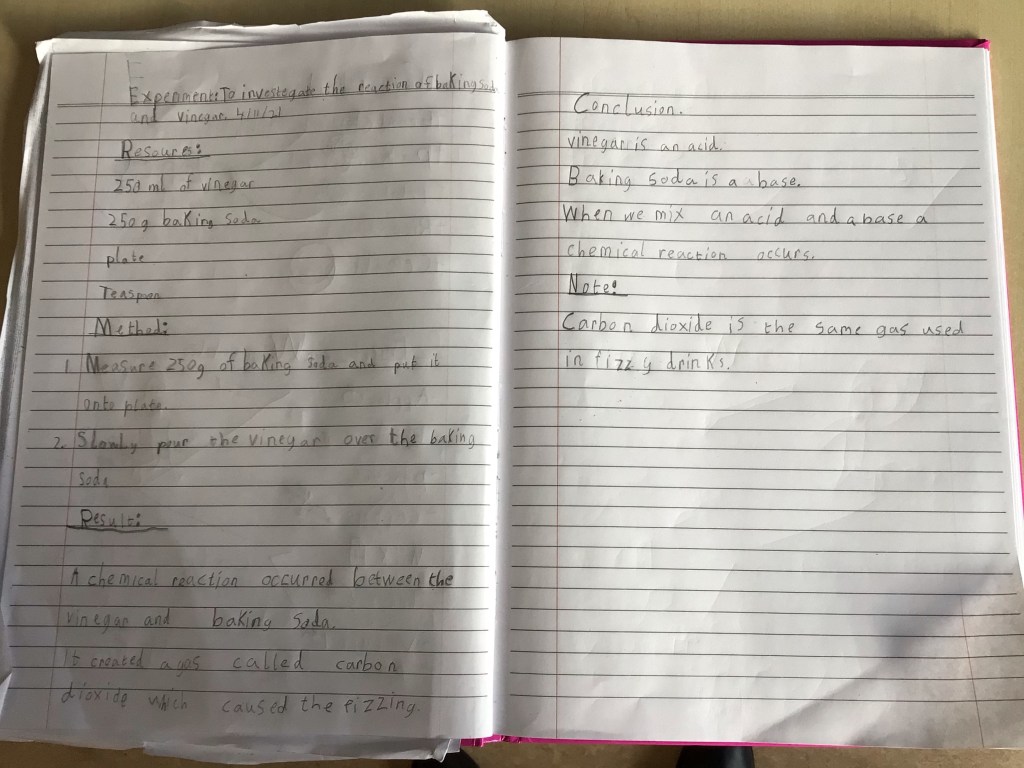 E
Experiment: To investegate the reaction of baking soda
and vinegar. 4/11/21
Resources:
250 ml of vinegar
250g baking soda
plate
Teaspoon
Method:
1. Measure 250g of baking soda and put it
onto plate.
2. Slowly pour the vinegar over the baking
soda
Result:
A chemical reaction occurred between the
vinegar and baking soda.
It created a gas called carbon
dioxide which caused the fizzing.
Conclusion.
vinegar is an acid.
Baking soda is a base.
When we mix an acid and a base a
chemical reaction occurs.
Note:
Carbon dioxide is the same gas used
in fizzy drinks.